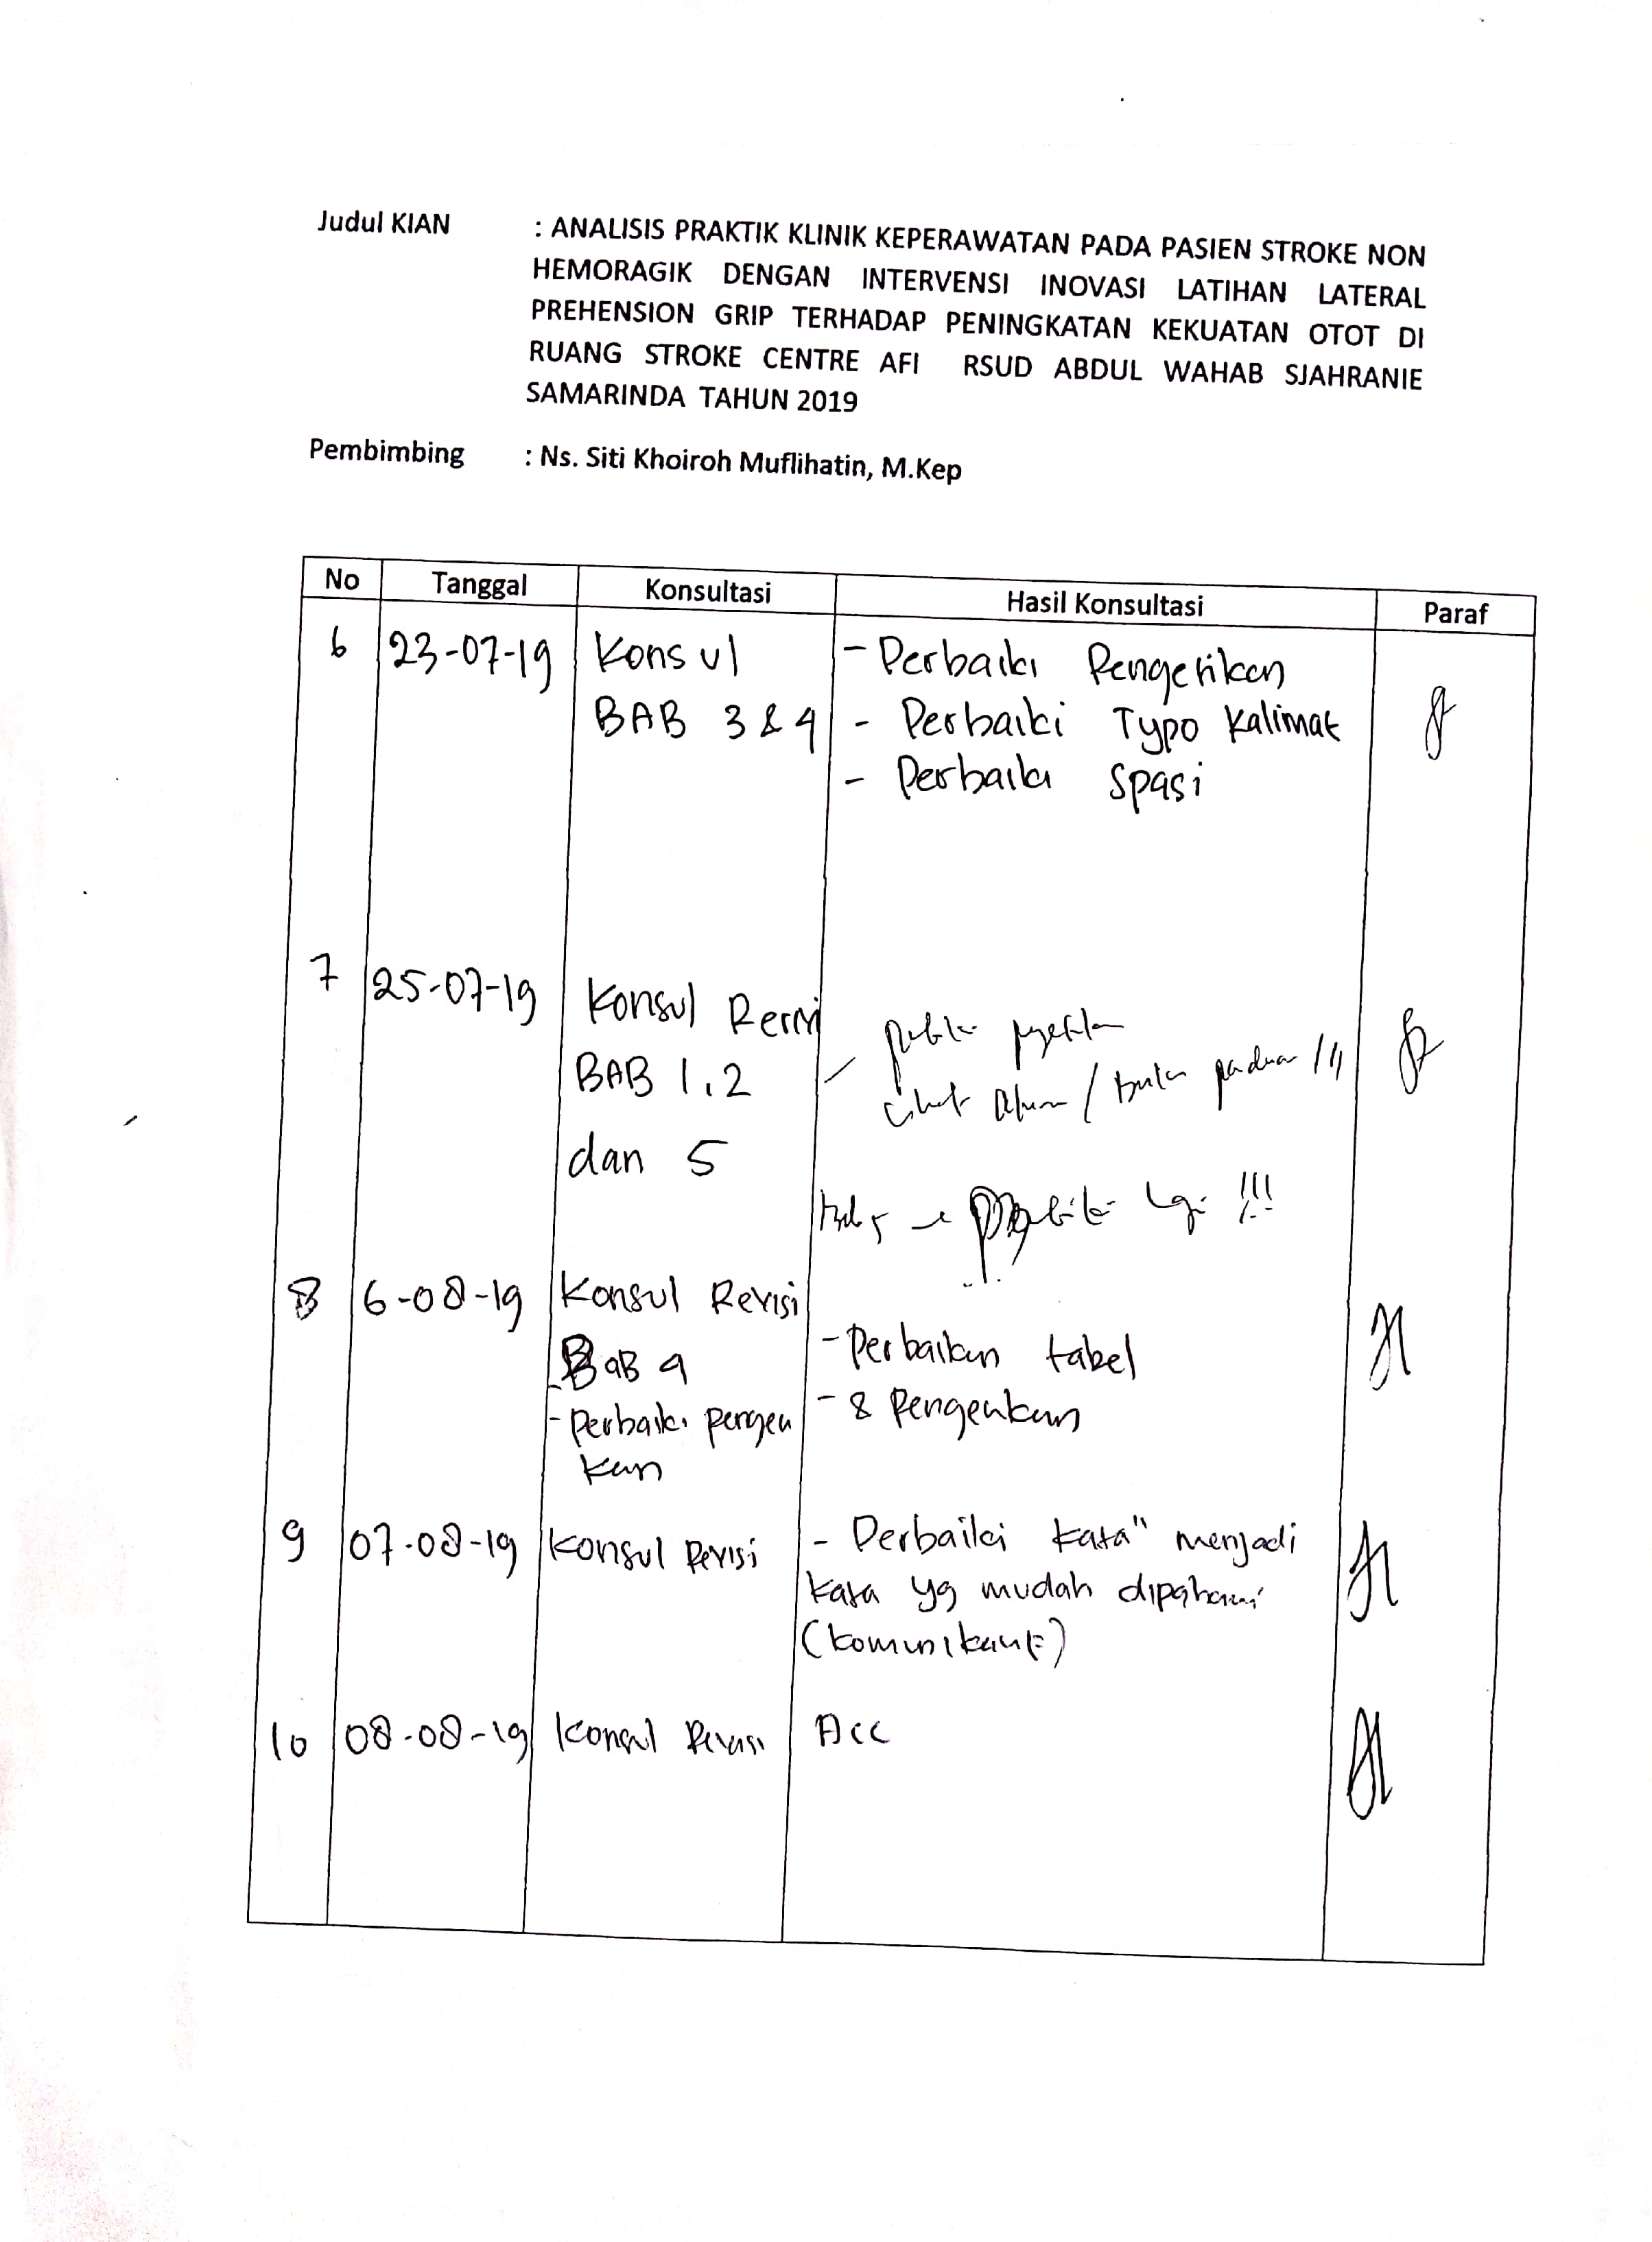 Judul KIAN : ANALISIS PRAKTIK KLINIK KEPERAWATAN PADA PASIEN STROKE NON
HEMORAGIK DENGAN INTERVENSI INOVASI LATIHAN LATERAL
PREHENSION GRIP TERHADAP PENINGKATAN KEKUATAN OTOT DI
RUANG STROKE CENTRE AFI RSUD ABDUL WAHAB SJAHRANIE
SAMARINDA TAHUN 2019
Pembimbing : Ns. Siti Khoiroh Muflihatin, M.Kep
No Tanggal Konsultasi Hasil Konsultasi Paraf
6 23-07-19 Konsul - Perbaiki Pengetikan
BAB 3 & 4 - Perbaiki Typo Kalimat
- Perbaiki Spasi
7 25-07-19 Konsul
BAB 1,2
dan 5
lgi !!!
8 6-08-19 Konsul Revisi
BaB 4 - Perbaikan tabel
- Perbaiki pengeti - & Pengetikan
kan
9 07-08-19 Konsul Revisi - Perbaiki kata" menjadi
kata yg mudah dipahami
(komunikatif)
10 08-08-19 Konsul Revisi Acc